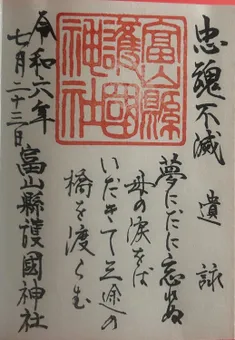 忠魂不滅
遺詠
夢にだに忘れぬ
母の涙をば
いだきて三途の
橋を渡らむ
富山縣
護國
神社
令和六年
七月二十三日
富山縣護國神社